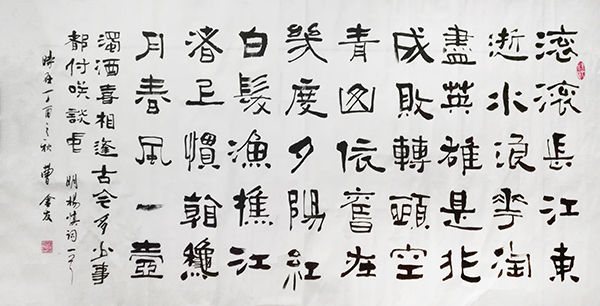 滚滚長江東
逝水浪花淘
盡英雄是非
成敗轉頭空
青山依舊在
幾度夕陽紅
白髮漁樵江
渚上慣看龝
月春風一壺
濁酒喜相逢古今多少事
都付咲談中 明楊慎詞一首
時在丁酉之秋 曹金友